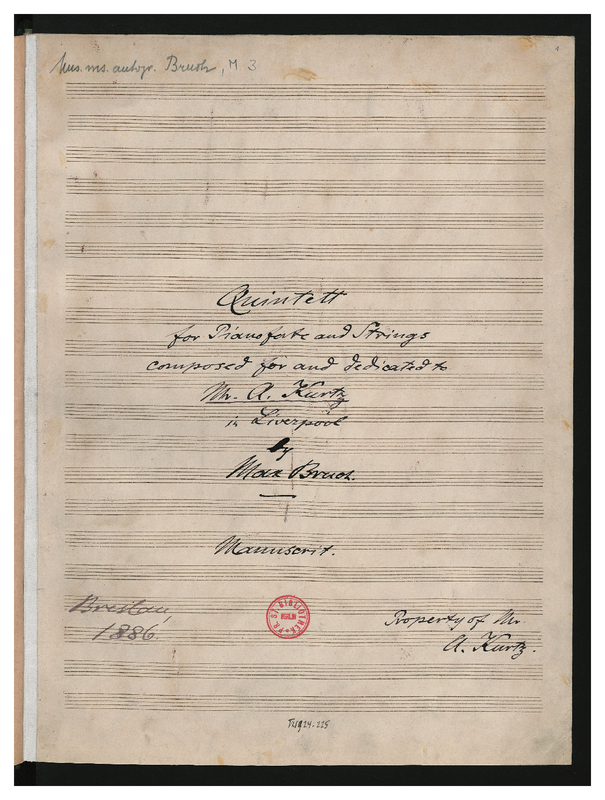 Mus. ms. autogr. Bruch, M 3
1
Quintett
for Pianoforte and Strings
composed for and dedicated to
Mr. A. Kurtz
in Liverpool
by
Max Bruch.
Manuscrit.
Breslau,
1886.
PR. ST. BIBLIOTHEK
BERLIN
Property of Mr
A. Kurtz.